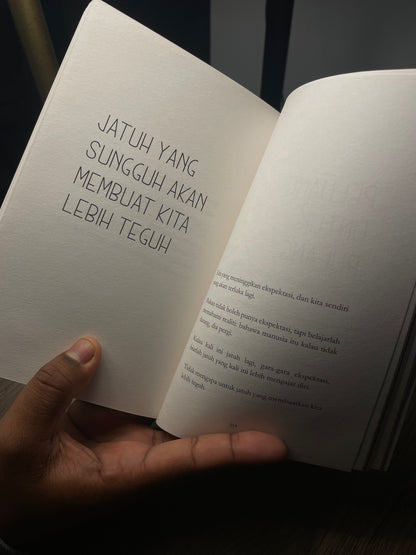 JATUH YANG
SUNGGUH AKAN
MEMBUAT KITA
LEBIH TEGUH
yang meninggikan ekspektasi, dan kita sendiri
yang akan terluka lagi.
Bukan tidak boleh punya ekspektasi, tapi belajarlah
memahami realita bahwa manusia itu kalau tidak
datang, dia pergi.
Kalau kali ini jatuh lagi, gara-gara ekspektasi,
jatuh yang kali ini lebih mengajar diri.
Tidak mengapa untuk jatuh yang membuatkan kita
lebih teguh.